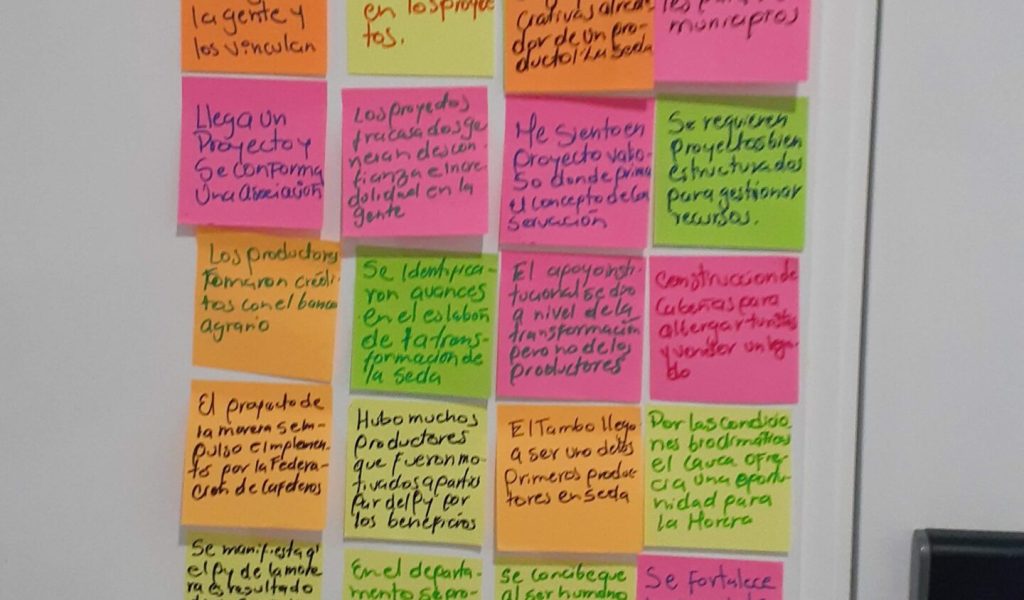 la gente y
los vinculan
en los proyec
tos.
crativas alrede
dor de un pro-
ducto: La Seda
municipios
Llega un
Proyecto y
Se conforma
Una Asociación
Los proyectos
fracasados ge
neran descon-
fianza e Incre
dulidad en la
gente
Me siento en
proyecto valio-
so donde prima
el concepto de con
servación
Se requieren
proyectos bien
estructurados
para gestionar
recursos.
Los productores
Tomaron crédi-
tos con el banco
agrario
Se Identifica-
ron avances
en el eslabón
de la trans-
formación de
la seda
El apoyo insti-
tucional se dio
a nivel de la
transformación
pero no de los
productores
Construccion de
Cabañas para
albergar turistas
y vender un lega-
do
El proyecto de
la morera se im-
pulso e implemen-
to por la Federa-
ción de Cafeteros
Hubo muchos
productores
que fueron mo-
tivados a partici
par del Py por
los beneficios
El Tambo llego
a ser uno de los
primeros produc-
tores en seda
Por las condicio
nes bioclimáticas
el Cauca ofre-
cia una oportu-
nidad para
la Morera
Se manifiesta q'
el Py de la more
ra es resultado
En el departa-
mento se pro-
Se concibe que
al ser humano
Se Fortalece